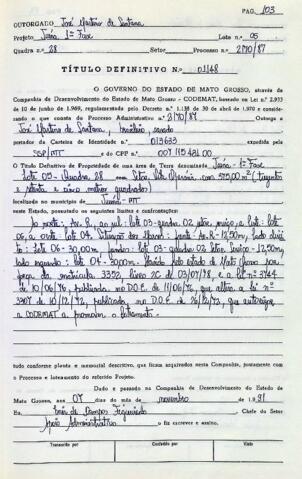 PAG. 103
OUTORGADO José Martins de Santana
Projeto Juína, 1ª Fase Lote n.º 05
Quadra n.º 28 Setor Processo n.º 2170/87
TÍTULO DEFINITIVO N.º 01148
O GOVERNO DO ESTADO DE MATO GROSSO, através da
Companhia de Desenvolvimento do Estado de Mato Grosso - CODEMAT, baseado na Lei n.º 2.933
de 10 de junho de 1969, regulamentado pelo Decreto n.º 1.138 de 30 de abril de 1970 e considerando
o que consta do Processo Administrativo n.º 2170/87 Outorga a
José Martins de Santana, brasileiro, casado
portador da Carteira de Identidade n.º 013633
SSP/MT e do CPF n.º 007.115.481.00
O Título Definitivo de Propriedade de uma área de Terra denominada Juína - 1ª Fase
Lote 05 - Quadra 28 375,00 m² (trezentos
e setenta e cinco metros quadrados)
localizado no município de Juína - MT
neste Estado, possuindo os seguintes limites e confrontações:
Ao norte: Av. 2, ao sul: lote 03 - quadra 02 lote
06, a oeste lote 04. Frente: Av. 2 - 12,50m, lado direito
: lote 06 - 30,00m, fundos: lote 03 - quadra 02 - 12,50m,
lado esquerdo: lote 04 - 30,00m. pelo estado de Mato Grosso por
força da matrícula 3352, livro 2C de 03/07/78, e a lei nº 3744
de 10/06/76, publicada no D.O.E. de 11/06/76, que altera a lei nº
3307 de 10/12/72, publicada no D.O.E. de 26/12/72, que autoriza
a CODEMAT a promover o loteamento.
tudo conforme planta e memorial descritivo, que ficam arquivados nesta Companhia, juntamente com
o Processo e loteamento do referido Projeto.
Dado e passado na Companhia de Desenvolvimento do Estado de
Mato Grosso, aos 07 dias do mês de novembro de 1991
Eu, de Campos Figueiredo Chefe do Setor
Apoio Administrativo o fiz escrever e assino.
Transcrito por Conferido por Visto